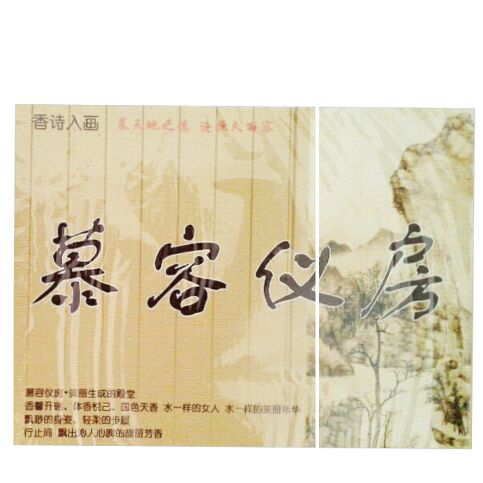 香诗入画
慕天地之德 造化大而容
慕容仪房
慕容仪房·美丽生成的殿堂
香馨开彻、体香悦己、国色天香 水一样的女人 水一样的美丽年华
飘渺的身姿、轻柔的步履
行止间 飘出沁人心脾的馥丽芳香